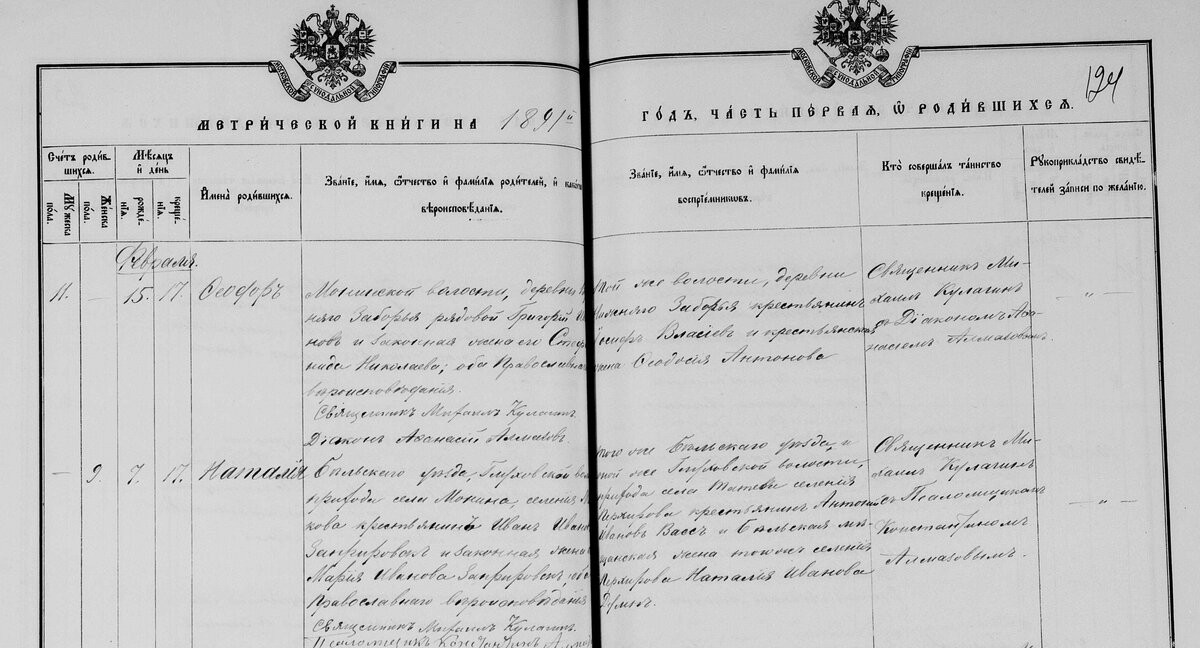 МОСКОВСКОЙ СѴНОДАЛЬНОЙ ТИПОГРАФІИ
МОСКОВСКОЙ СѴНОДАЛЬНОЙ ТИПОГРАФІИ
124
МЕТРИ́ЧЕСКОЙ КНИ́ГИ НА 1891й
ГО́ДЪ, ЧА́СТЬ ПЕ́РВАЯ, Ѡ РОДИ́ВШИХСЯ.
Сче́тъ роди́в-
шихся.
Му́жеска
пола.
Же́нска
пола.
Мѣ́сяцъ
и҆ де́нь
рожде́-
нія.
креще́-
нія.
И҆мена̀ роди́вшихся.
Зва́ніе, и҆́мя, ѻ҆́тчество и҆ фами́лія роди́телей, и҆ како́гѡ
вѣроисповѣ́данія.
Зва́ніе, и҆́мя, ѻ҆́тчество и҆ фами́лія
воспріе́мниковъ.
Кто̀ соверша́лъ та́инство
креще́нія.
Рꙋкоприкла́дство свидѣ́-
телей за́писи по жела́нію.
Февраля.
11. — 15. 17. Ѳеодоръ
Монинской волости, деревни
няго Заборья рядовой Григорій
новъ и законная жена его Сте
нида Николаева; оба Православнаго
вѣроисповѣданія.
Священникъ Михаилъ Кулагинъ
Діаконъ Аѳанасій Алмазовъ.
той же волости, деревни
Нижняго Заборья крестьянинъ
Іосифъ Власіевъ и крестьянская
жена Ѳеодосія Антонова
Священникъ Ми-
хаилъ Кулагинъ
съ Діакономъ Аѳа-
насіемъ Алмазовымъ.
— „ —
— 9. 7. 17. Наталія
Бѣльскаго уѣзда, Глуховской
прихода села Монина, селенія
кова крестьянинъ Иванъ Ивановъ
и законная жена
Марія Иванова
Православнаго вѣроисповѣданія
Священникъ Михаилъ Кулагинъ.
Псаломщикъ Константинъ
того же Бѣльскаго уѣзда, и
той же Глуховской волости,
прихода села Татева селенія
крестьянинъ Антоній
Ивановъ Вассъ и Бѣльская мѣ-
щанская жена тогожъ селенія
Наталія Иванова
Священникъ Ми-
хаилъ Кулагинъ
съ Псаломщикомъ
Константиномъ
Алмазовымъ.
— „ —